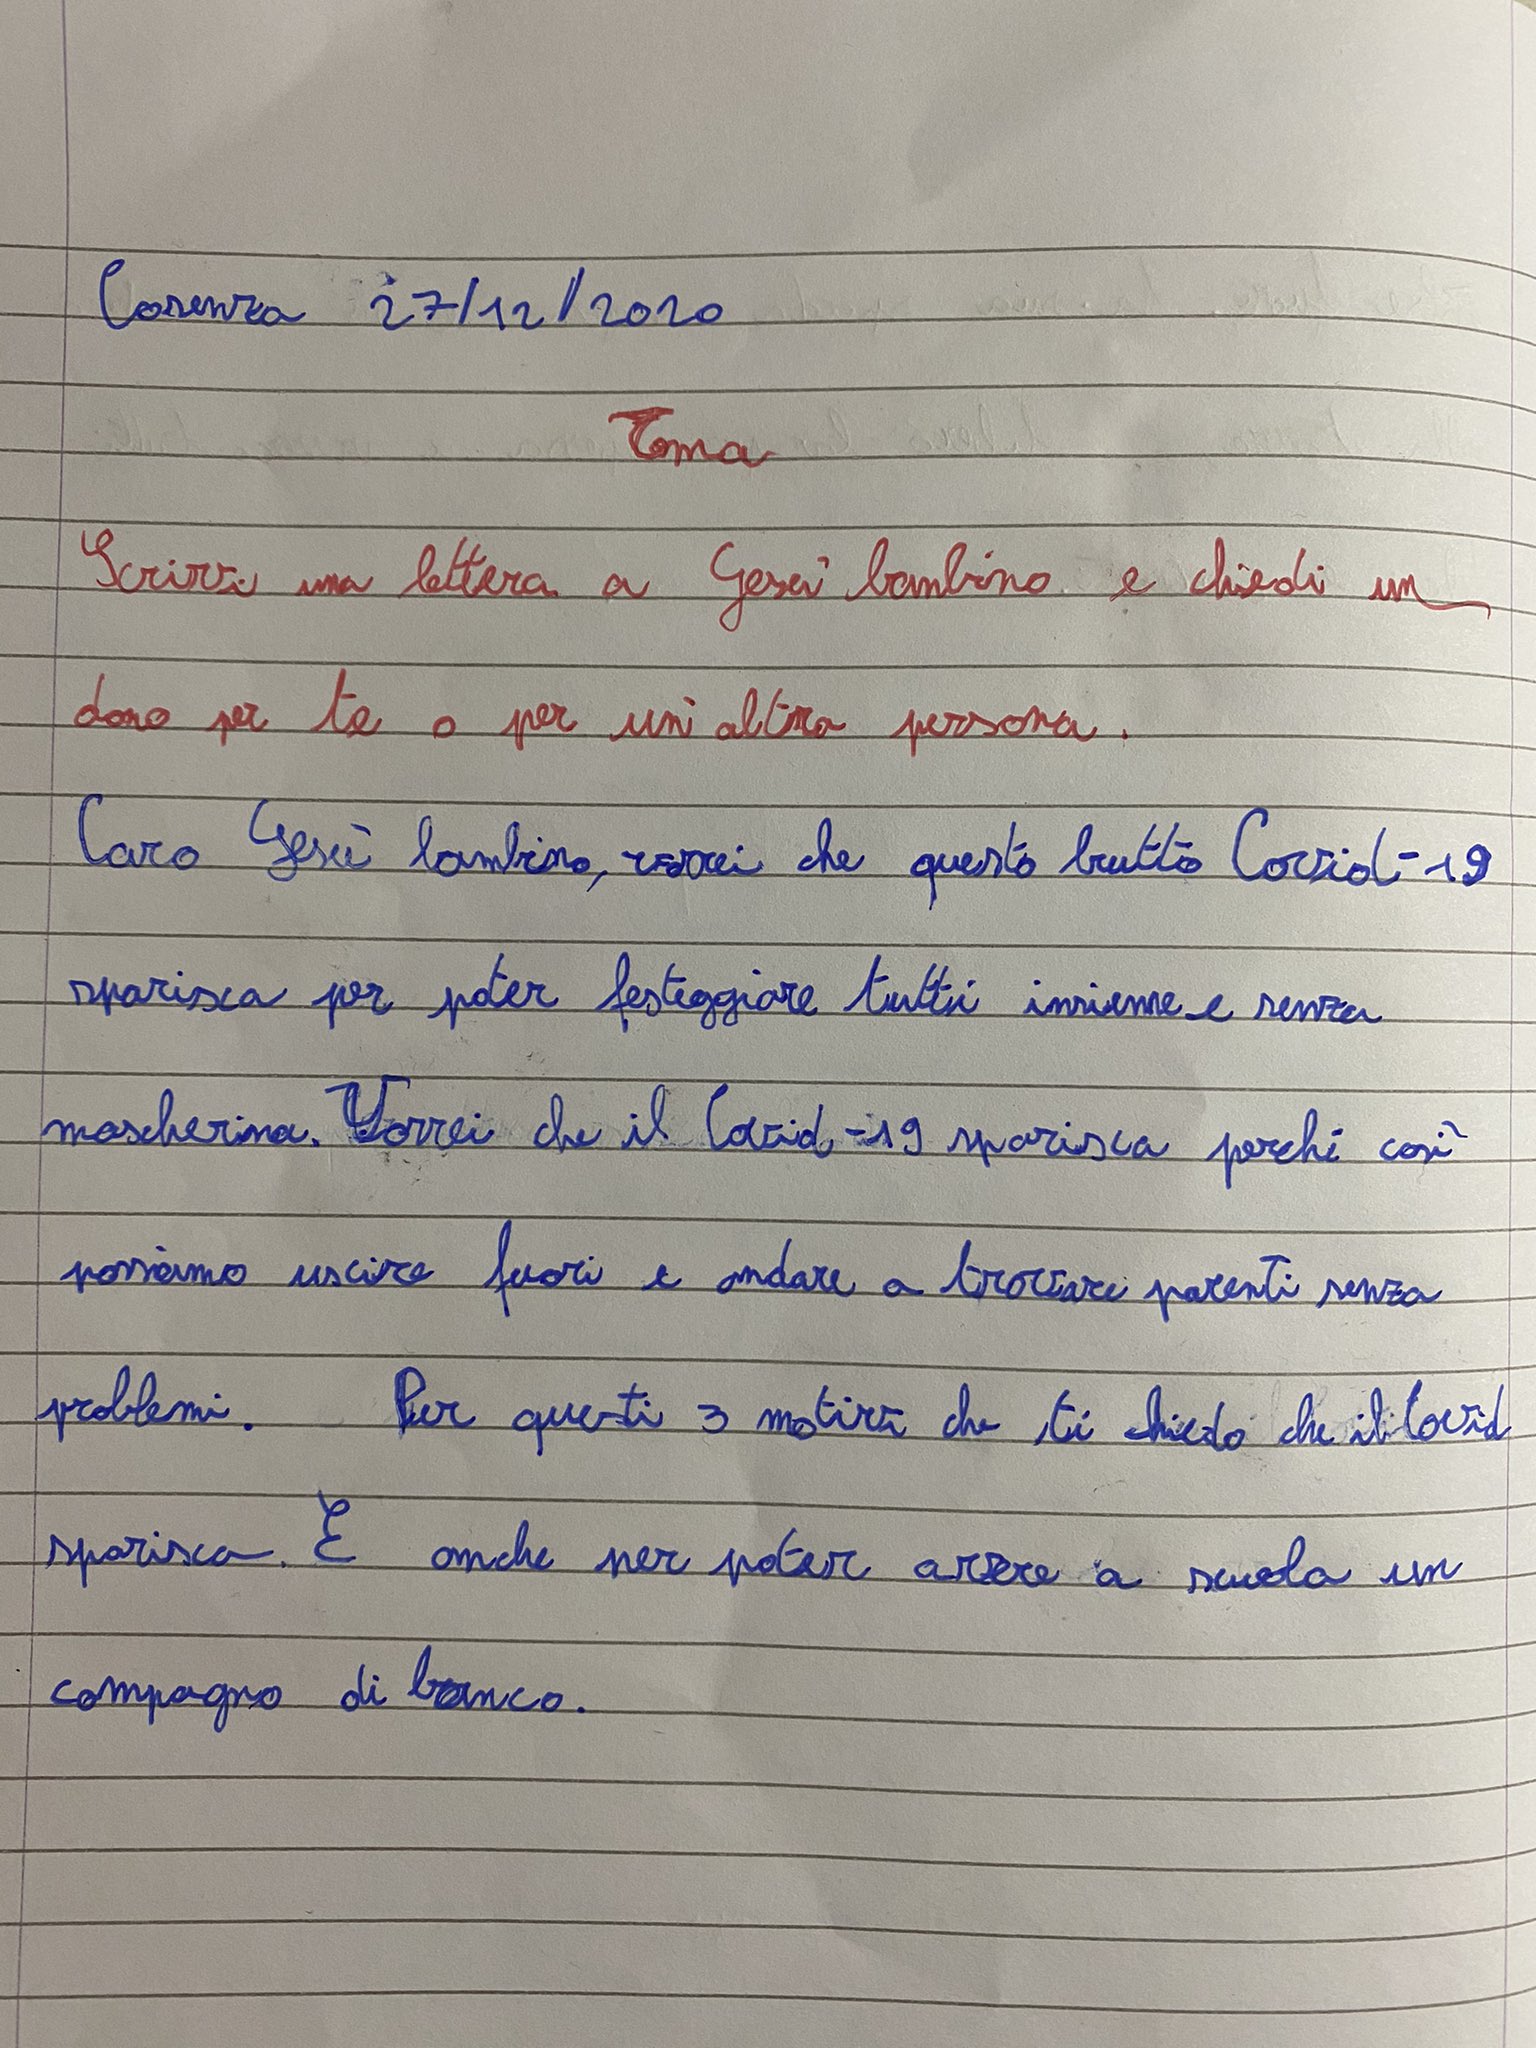 Cosenza 27/12/2020
Tema
Scrivi una lettera a Gesù bambino e chiedi un
dono per te o per un'altra persona.
Caro Gesù bambino, vorrei che questo brutto Covid-19
sparisca per poter festeggiare tutti insieme e senza
mascherina. Vorrei che il Covid-19 sparisca perché così
possiamo uscire fuori e andare a trovare parenti senza
problemi. Per questi 3 motivi che ti chiedo che il Covid
sparisca. E anche per poter avere a scuola un
compagno di banco.